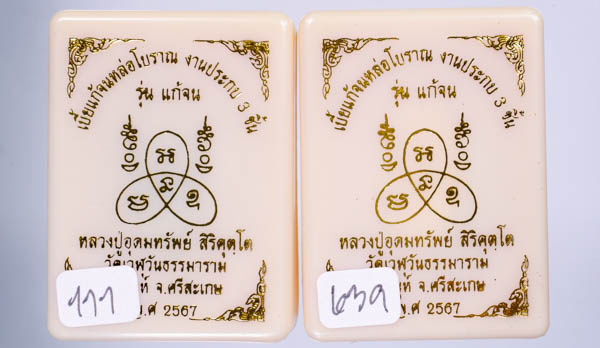 เบี้ยแก้จนหล่อโบราณ งานประกบ 3 ชิ้น
รุ่น แก้จน
หลวงปู่อุดมทรัพย์ สิริคุตฺโต
วัดเวฬุวันธรรมาราม
ห์ จ.ศรีสะเกษ
พ.ศ 2567
777
เบี้ยแก้จนหล่อโบราณ งานประกบ 3 ชิ้น
รุ่น แก้จน
หลวงปู่อุดมทรัพย์ สิริคุตฺโต
วัดเวฬุวันธรรมาราม
ห์ จ.ศรีสะเกษ
พ.ศ 2567